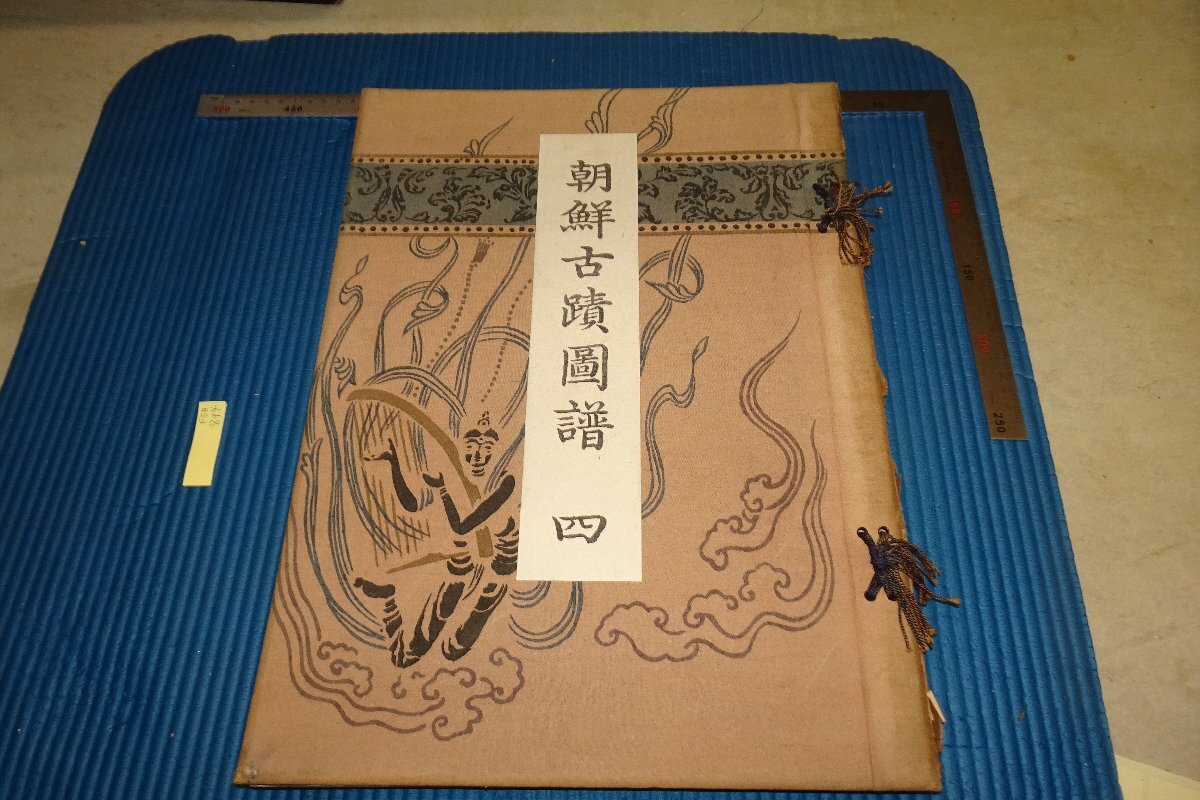 朝鮮古蹟圖譜 四
500
450
50
100
150
200
250